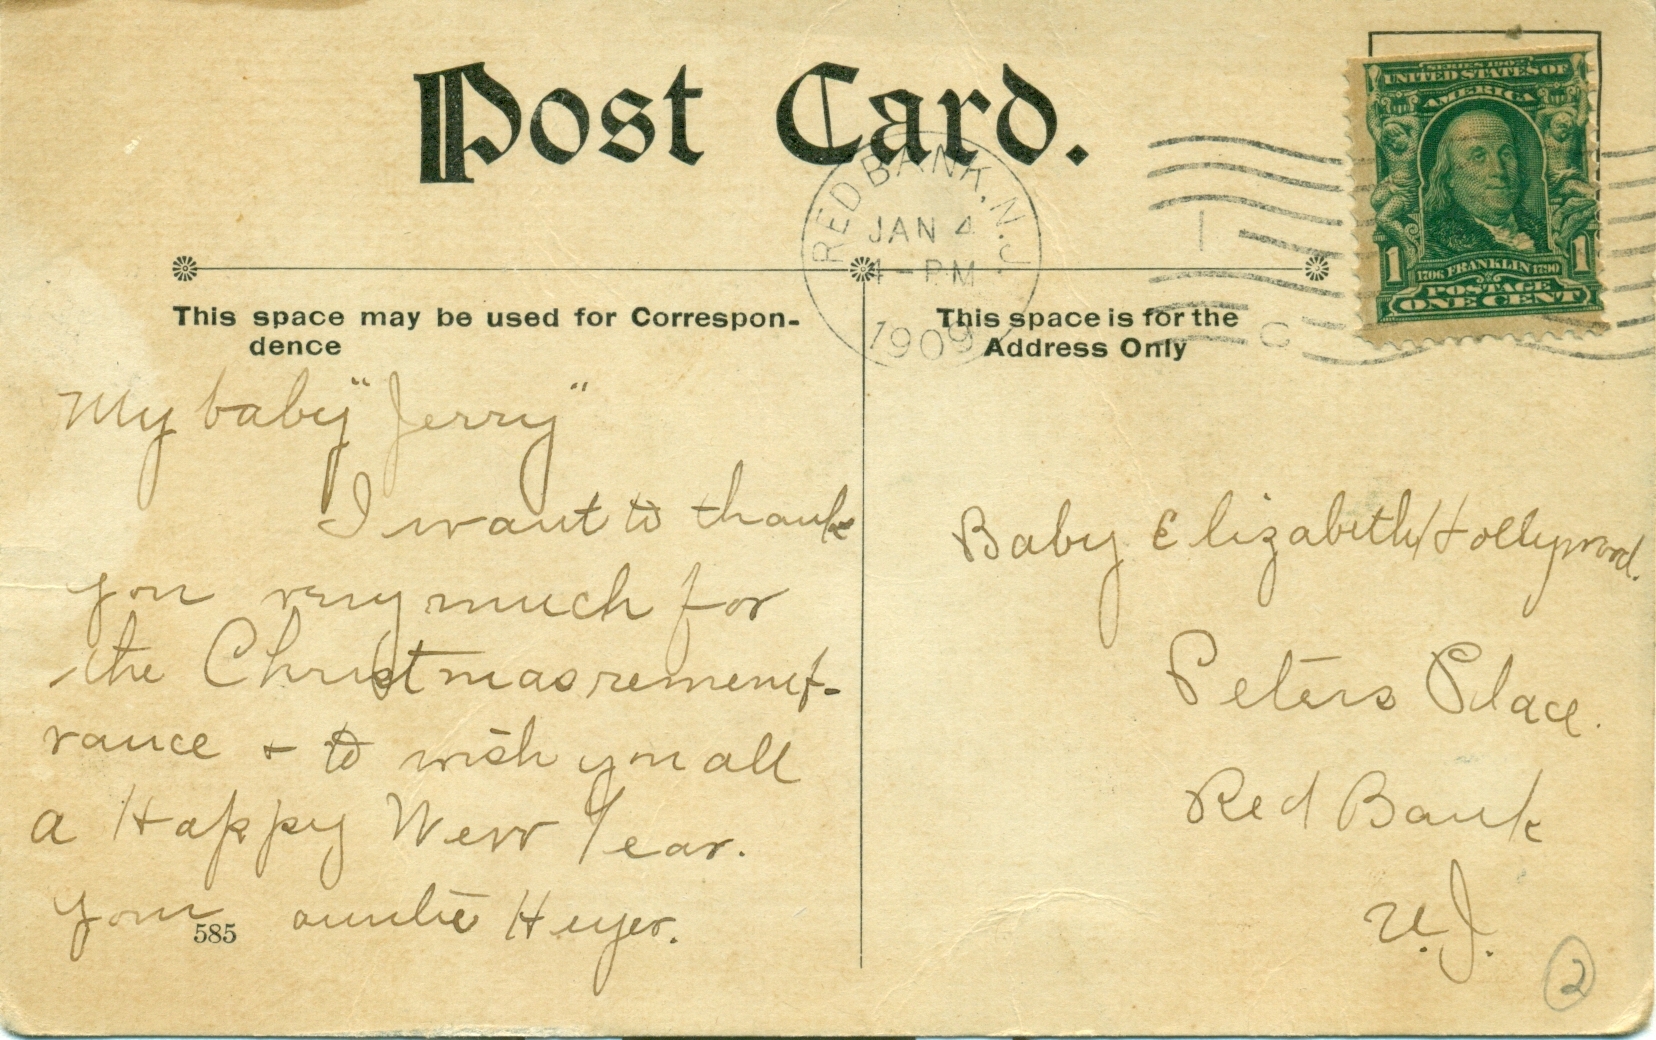 Post Card.
SERIES 1902
UNITED STATES OF
AMERICA
1 1
1706 FRANKLIN 1790
POSTAGE
ONE CENT
RED BANK, N.J.
JAN 4
4 - PM
1909
1
C
This space may be used for Correspon-
dence
This space is for the
Address Only
My baby "Jerry"
I want to thank
you very much for
the Christmas rememb-
rance + to wish you all
a Happy New Year.
Your auntie Heyer.
585
Baby Elizabeth Hollywood.
Peters Place.
Red Bank
N.J.
2